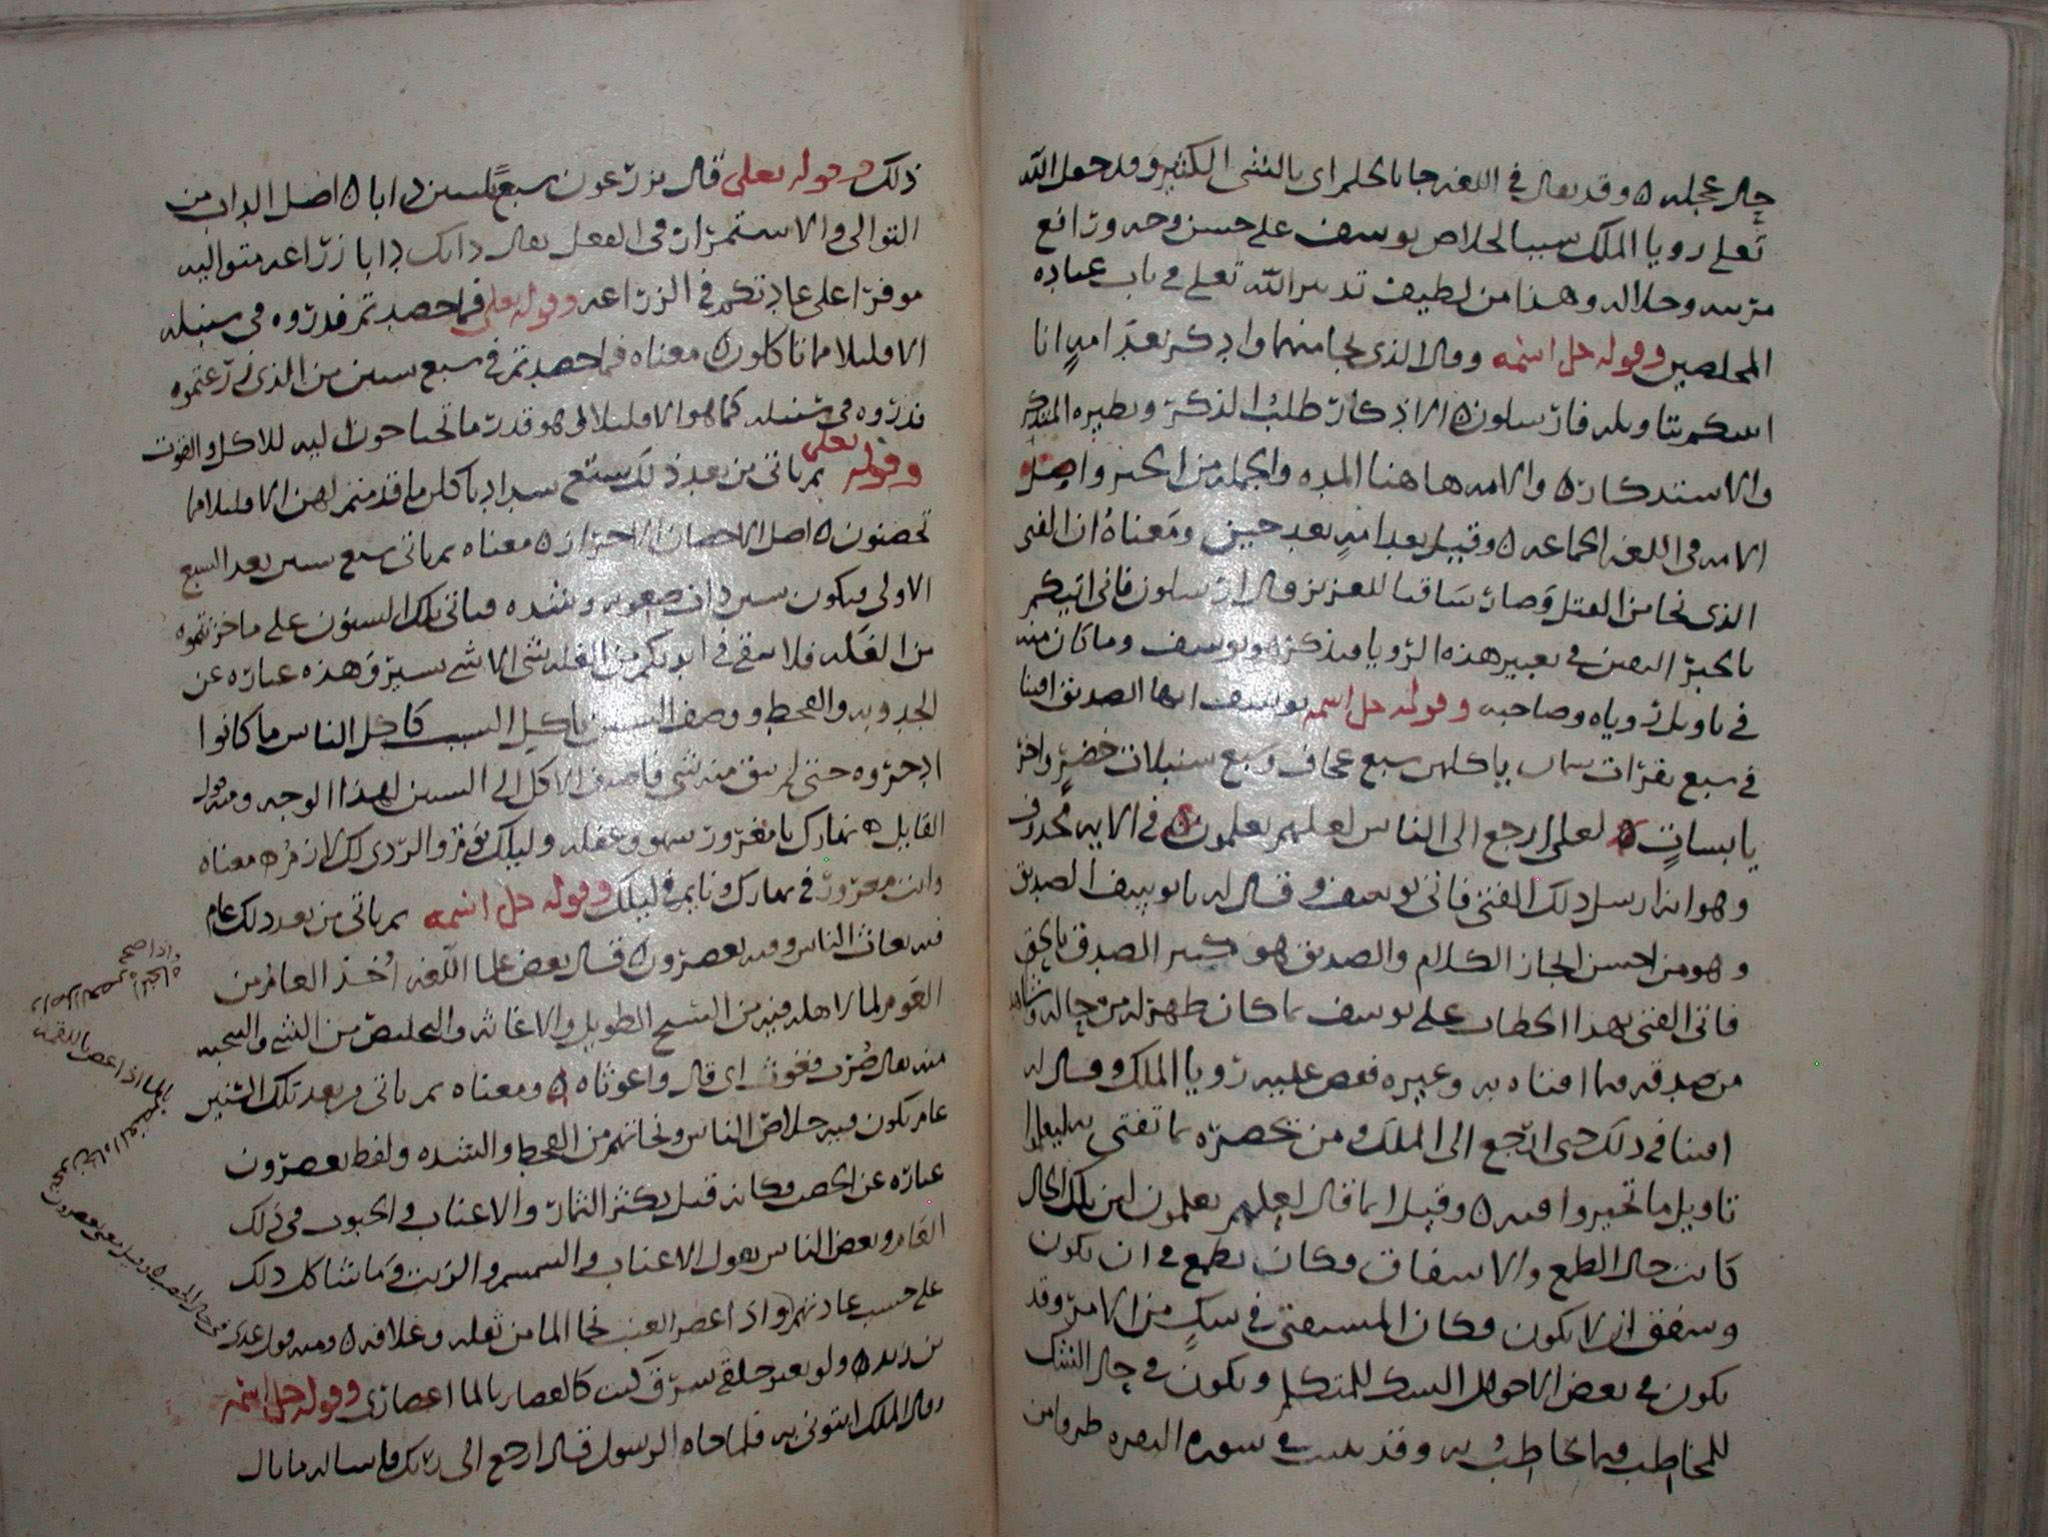 حال عجله ٥ وقد يقال في اللغه جا بالحلم اى بالشى الكثير وقد جعل الله
تعلى رويا الملك سببا لخلاص يوسف على حسن وجه ورافع
مرتبه وجلاله وهذا من لطيف تدبير الله تعلى في باب عباده
المخلصين وقوله جل اسمه وقال الذى نجا منهما وادكر بعد امه انا
انبيكم بتاويله فارسلون ٥ الاذكار طلب الذكر ونظيره التذكر
والاستذكار ٥ والامه هاهنا المده والجمله من الحين واصل
الامه في اللغه الجماعه ٥ وقيل بعد امه بعد حين ومعناه ان الفتى
الذى نجا من القتل وصار ساقيا للعزيز قال ارسلون فانى اتيكم
بالخبر اليقين في تعبير هذه الرويا فيذكر هو يوسف وما كان منه
في تاويل روياه وصاحبه وقوله جل اسمه يوسف ايها الصديق افتنا
في سبع بقرات سمان ياكلهن سبع عجاف وسبع سنبلات خضر واخر
يابسات ٥ لعلى ارجع الى الناس لعلهم يعلمون ٥ في الايه محذوف
وهو انه ارسل ذلك الفتى فاتى يوسف وقال له يا يوسف الصديق
وهو من احسن ايجاز الكلام والصديق هو كثير الصدق بالحق
فاتى الفتى بهذا الخطاب على يوسف بما كان ظهر له من حاله وشاهد
من صدقه فيما افتاه به وعبره فقص عليه رويا الملك وقال له
افتنا في ذلك حتى ارجع الى الملك ومن بحضره بما تفتى به ليعلموا
تاويل ما تحيروا فيه ٥ وقيل انما قال لعلهم يعلمون لان تلك الحال
كانت حال الطمع والاشفاق وكان يطمع في ان يكون
ويشفق ان لا يكون وكان المستفتى في شك من الامر وقد
يكون في بعض الاحوال الشك للمتكلم ويكون في حال الشك
للمخاطب فيما يخاطب به وقد بينت في سوره البقره طرفا من
ذلك وقوله تعلى قال تزرعون سبع سنين دابا ٥ اصل الداب من
التوالى والاستمرار في الفعل يقال دابك دابا زراعه متواليه
موفرا على عادتكم في الزراعه وقوله تعلى فما حصدتم فذروه في سنبله
الا قليلا مما تاكلون ٥ معناه فما حصدتم في سبع سنين من الذى زرعتموه
فذروه في سنبله كما هو الا قليلا وهو قدر ما تحتاجون اليه للاكل والقوت
وقوله تعلى ثم ياتى من بعد ذلك سبع شداد ياكلن ما قدمتم لهن الا قليلا مما
تحصنون ٥ اصل الاحصان الاحتراز ٥ معناه ثم ياتى سبع سنين بعد السبع
الاولى فيكون سنين ذات صعوبه وشده فياتى تلك السنون على ما خزنتموه
من الغله فلا يبقى في ايديكم من الغله شى الا شى يسير وهذه عباره عن
الجدوبه والقحط ووصف السنين باكل السبب كاكل الناس ما كانوا
ادخروه حتى لم يبق منه شى فاضيف الاكل الى السنين لهذا الوجه ومنه قول
القايل ٥ نهارك يا مغرور سهو وغفله وليلك نوم والردى لك لازم ٥ معناه
وانت مغرور في نهارك ونايم في ليلك وقوله جل اسمه ثم ياتى من بعد ذلك عام
فيه يغاث الناس وفيه يعصرون ٥ قال بعض علما اللغه اخذ العام من
العوم لما لاهله فيه من السبح الطويل والاغاثه والتخليص من الشى والتنحيه
منه يقال ضرب فغوث اى قال واغوثاه ٥ ومعناه ثم ياتى من بعد تلك السنين
عام يكون فيه خلاص الناس ونجاتهم من القحط والشده ولفظ يعصرون
عباره عن الخصب وكانه قيل يكثر الثمار والاعناب والحبوب في ذلك
العام وبعض الناس يقول الاعناب والسمسم والزيت وما شاكل ذلك
على حسب عادتهم واذا عصر العنب نحا الما من ثفله وغلافه ٥ ومنه قول عدى
بن زيد ٥ ولو بغير حلقى شرق كنت كالغصان بالما اعتصارى وقوله جل اسمه
وقال الملك ايتونى به فلما جاه الرسول قال ارجع الى ربك فاساله ما بال
الما اذا غص باللقمه